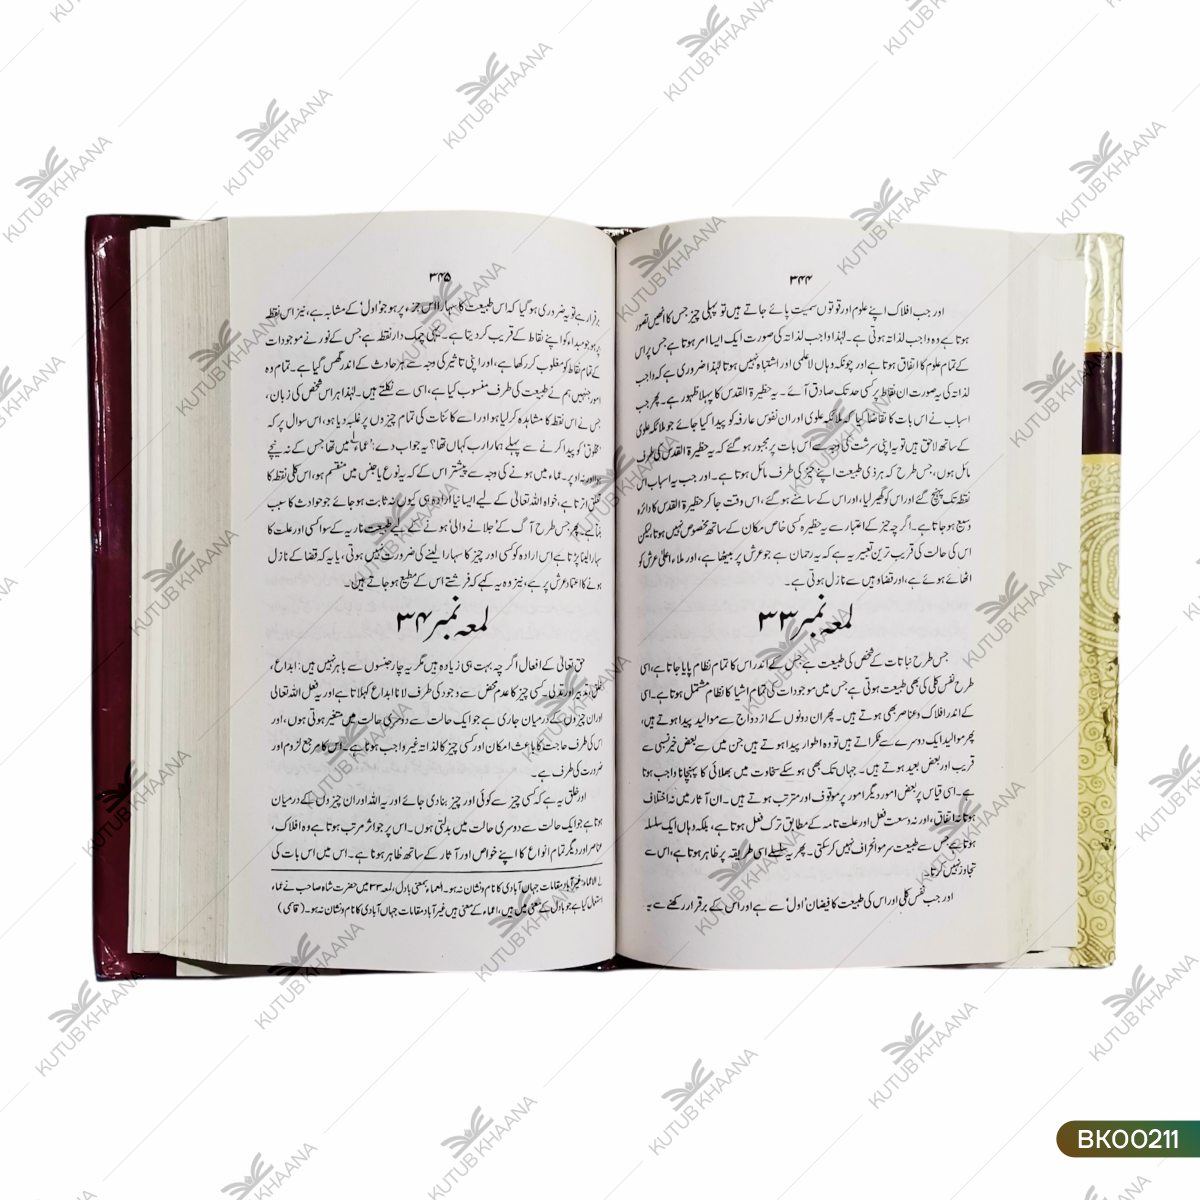 ۳۴۴
اور جب افلاک اپنے علوم اور قوتوں سمیت پائے جاتے ہیں تو پہلی چیز جس کا انھیں تصور
ہوتا ہے وہ واجب لذاتہ ہوتی ہے۔ لہٰذا واجب لذاتہ کی صورت ایک ایسا امر ہوتا ہے جس پر اس
کے تمام علوم کا اتفاق ہوتا ہے اور چونکہ وہاں لاعلمی اور اشتباہ نہیں ہوتا لہٰذا ضروری ہے کہ واجب
لذاتہ کی یہ صورت ان نقاط پر کسی حد تک صادق آئے۔ یہ حظیرۃ القدس کا پہلا ظہور ہے۔ پھر جب
اسباب نے اس بات کا تقاضا کیا کہ ملائکہ علوی اور ان نفوس عارفہ کو پیدا کیا جائے جو ملائکہ علوی
کے ساتھ لاحق ہیں تو یہ اپنی سرشت کی وجہ سے اس بات پر مجبور ہو گئے کہ یہ حظیرۃ القدس کی طرف
مائل ہوں، جس طرح کہ ہر ذی طبیعت اپنے حیز کی طرف مائل ہوتا ہے۔ اور جب یہ اسباب اس
نقطہ تک پہنچ گئے اور اس کو گھیر لیا، اور اس کے سامنے ہو گئے، اس وقت جا کر حظیرۃ القدس کا دائرہ
وسیع ہو جاتا ہے۔ اگر چہ حیز کے اعتبار سے یہ حظیرہ کسی خاص مکان کے ساتھ مخصوص نہیں ہوتا لیکن
اس کی حالت کی قریب ترین تعبیر یہ ہے کہ یہ رحمان ہے جو عرش پر بیٹھا ہے، اور ملاء اعلیٰ عرش کو
اٹھائے ہوئے ہے، اور قضاء وہیں سے نازل ہوتی ہے۔
لمعہ نمبر ۳۳
جس طرح نباتات کے شخص کی طبیعت ہے جس کے اندر اس کا تمام نظام پایا جاتا ہے، اسی
طرح نفس کلی کی بھی طبیعت ہوتی ہے جس میں موجودات کی تمام اشیا کا نظام مشتمل ہوتا ہے۔ اسی
کے اندر افلاک و عناصر بھی ہوتے ہیں۔ پھر ان دونوں کے ازدواج سے موالید پیدا ہوتے ہیں،
پھر موالید ایک دوسرے سے ٹکراتے ہیں تو وہ اطوار پیدا ہوتے ہیں جن میں سے بعض خیر نسبی سے
قریب اور بعض بعید ہوتے ہیں۔ جہاں تک بھی ہو سکے سخاوت میں بھلائی کا پہنچانا واجب ہوتا
ہے۔ اسی قیاس پر بعض امور دیگر امور پر موقوف اور مترتب ہوتے ہیں۔ ان آثار میں نہ اختلاف
ہوتا نہ اتفاق، اور نہ وسعت فعل اور علت تامہ کے مطابق ترک فعل ہوتا ہے، بلکہ وہاں ایک سلسلہ
ہوتا ہے جس سے طبیعت سرمو انحراف نہیں کر سکتی۔ پھر یہ سلسلے اسی طریقہ پر ظاہر ہوتا ہے، اس سے
تجاوز نہیں کرتا۔
اور جب نفس کلی اور اس کی طبیعت کا فیضان 'اول' سے ہے اور اس کے برقرار رکھنے سے یہ
۳۴۵
برقرار ہے تو یہ ضروری ہو گیا کہ اس طبیعت کا سہارا اس جزء پر ہو جو 'اول' کے مشابہ ہے، نیز اس نقطہ
پر ہو جو مبداء کو اپنے نقاط کے قریب کر دیتا ہے۔ یہی چمک دار نقطہ ہے جس کے نور نے موجودات
کے تمام نقاط کو مغلوب کر رکھا ہے، اور اپنی تاثیر کی وجہ سے ہر حادث کے اندر گھس گیا ہے۔ تمام وہ
امور جنہیں ہم نے طبیعت کی طرف منسوب کیا ہے، اسی سے نکلتے ہیں۔ لہٰذا ہر اس شخص کی زبان،
جس نے اس نقطہ کا مشاہدہ کر لیا ہو اور اسے کائنات کی تمام چیزوں پر غلبہ دیا ہو، اس سوال پر کہ
'خلوق' کو پیدا کرنے سے پہلے ہمارا رب کہاں تھا؟ یہ جواب دے: 'عماء میں تھا جس کے نہ نیچے
ہوا اور نہ اوپر۔ عماء میں ہونے کی وجہ سے پیشتر اس کے کہ یہ نوع یا جنس میں منقسم ہو، اس کلی نقطہ کا
تعلق اترتا ہے، خواہ اللہ تعالیٰ کے لیے ایسا نیا ارادہ ہی کیوں نہ ثابت ہو جائے جو حوادث کا سبب
بنتا ہے۔ پھر جس طرح آگ کے 'جلانے والی' ہونے کے لیے طبیعت ناریہ کے سوا کسی اور علت کا
سہارا لینا پڑتا ہے اس ارادہ کو کسی اور چیز کا سہارا لینے کی ضرورت نہیں ہوتی، یا یہ کہ قضا کے نازل
ہونے کا اعتماد عرش پر ہے، نیز وہ یہ کہے کہ فرشتے اس کے مطیع ہو جاتے ہیں۔
لمعہ نمبر ۳۴
حق تعالیٰ کے افعال اگر چہ بہت ہی زیادہ ہیں مگر یہ چار جنسوں سے باہر نہیں ہیں: ابداع،
خلق، تدبیر اور تدلی۔ کسی چیز کا عدم محض سے وجود کی طرف لانا ابداع کہلاتا ہے اور یہ فعل اللہ تعالیٰ
اور ان چیزوں کے درمیان جاری ہے جو ایک حالت سے دوسری حالت میں متغیر ہوتی ہوں، اور
اس کی طرف حاجت کا باعث امکان اور کسی چیز کا لذاتہ غیر واجب ہونا ہے۔ اس کا مرجع لزوم اور
ضرورت کی طرف ہے۔
اور خلق یہ ہے کہ کسی چیز سے کوئی اور چیز بنا دی جائے اور یہ اللہ اور ان چیزوں کے درمیان
ہوتا ہے جو ایک حالت سے دوسری حالت میں بدلتی ہوں۔ اس پر جو اثر مرتب ہوتا ہے وہ افلاک،
عناصر اور دیگر تمام انواع کا اپنے خواص اور آثار کے ساتھ ظاہر ہونا ہے۔ اس میں اس بات کی
غیر آباد مقامات جہاں آبادی کا نام و نشان نہ ہو۔ العماء بمعنی بادل، لمعہ ۳۳ میں حضرت شاہ صاحب نے عماء
استعمال کیا ہے جو بادل کے معنی میں ہیں، اعماء کے معنی ہیں غیر آباد مقامات جہاں آبادی کا نام و نشان نہ ہو۔ (قاسمی)
KUTUB KHAANA
BK00211